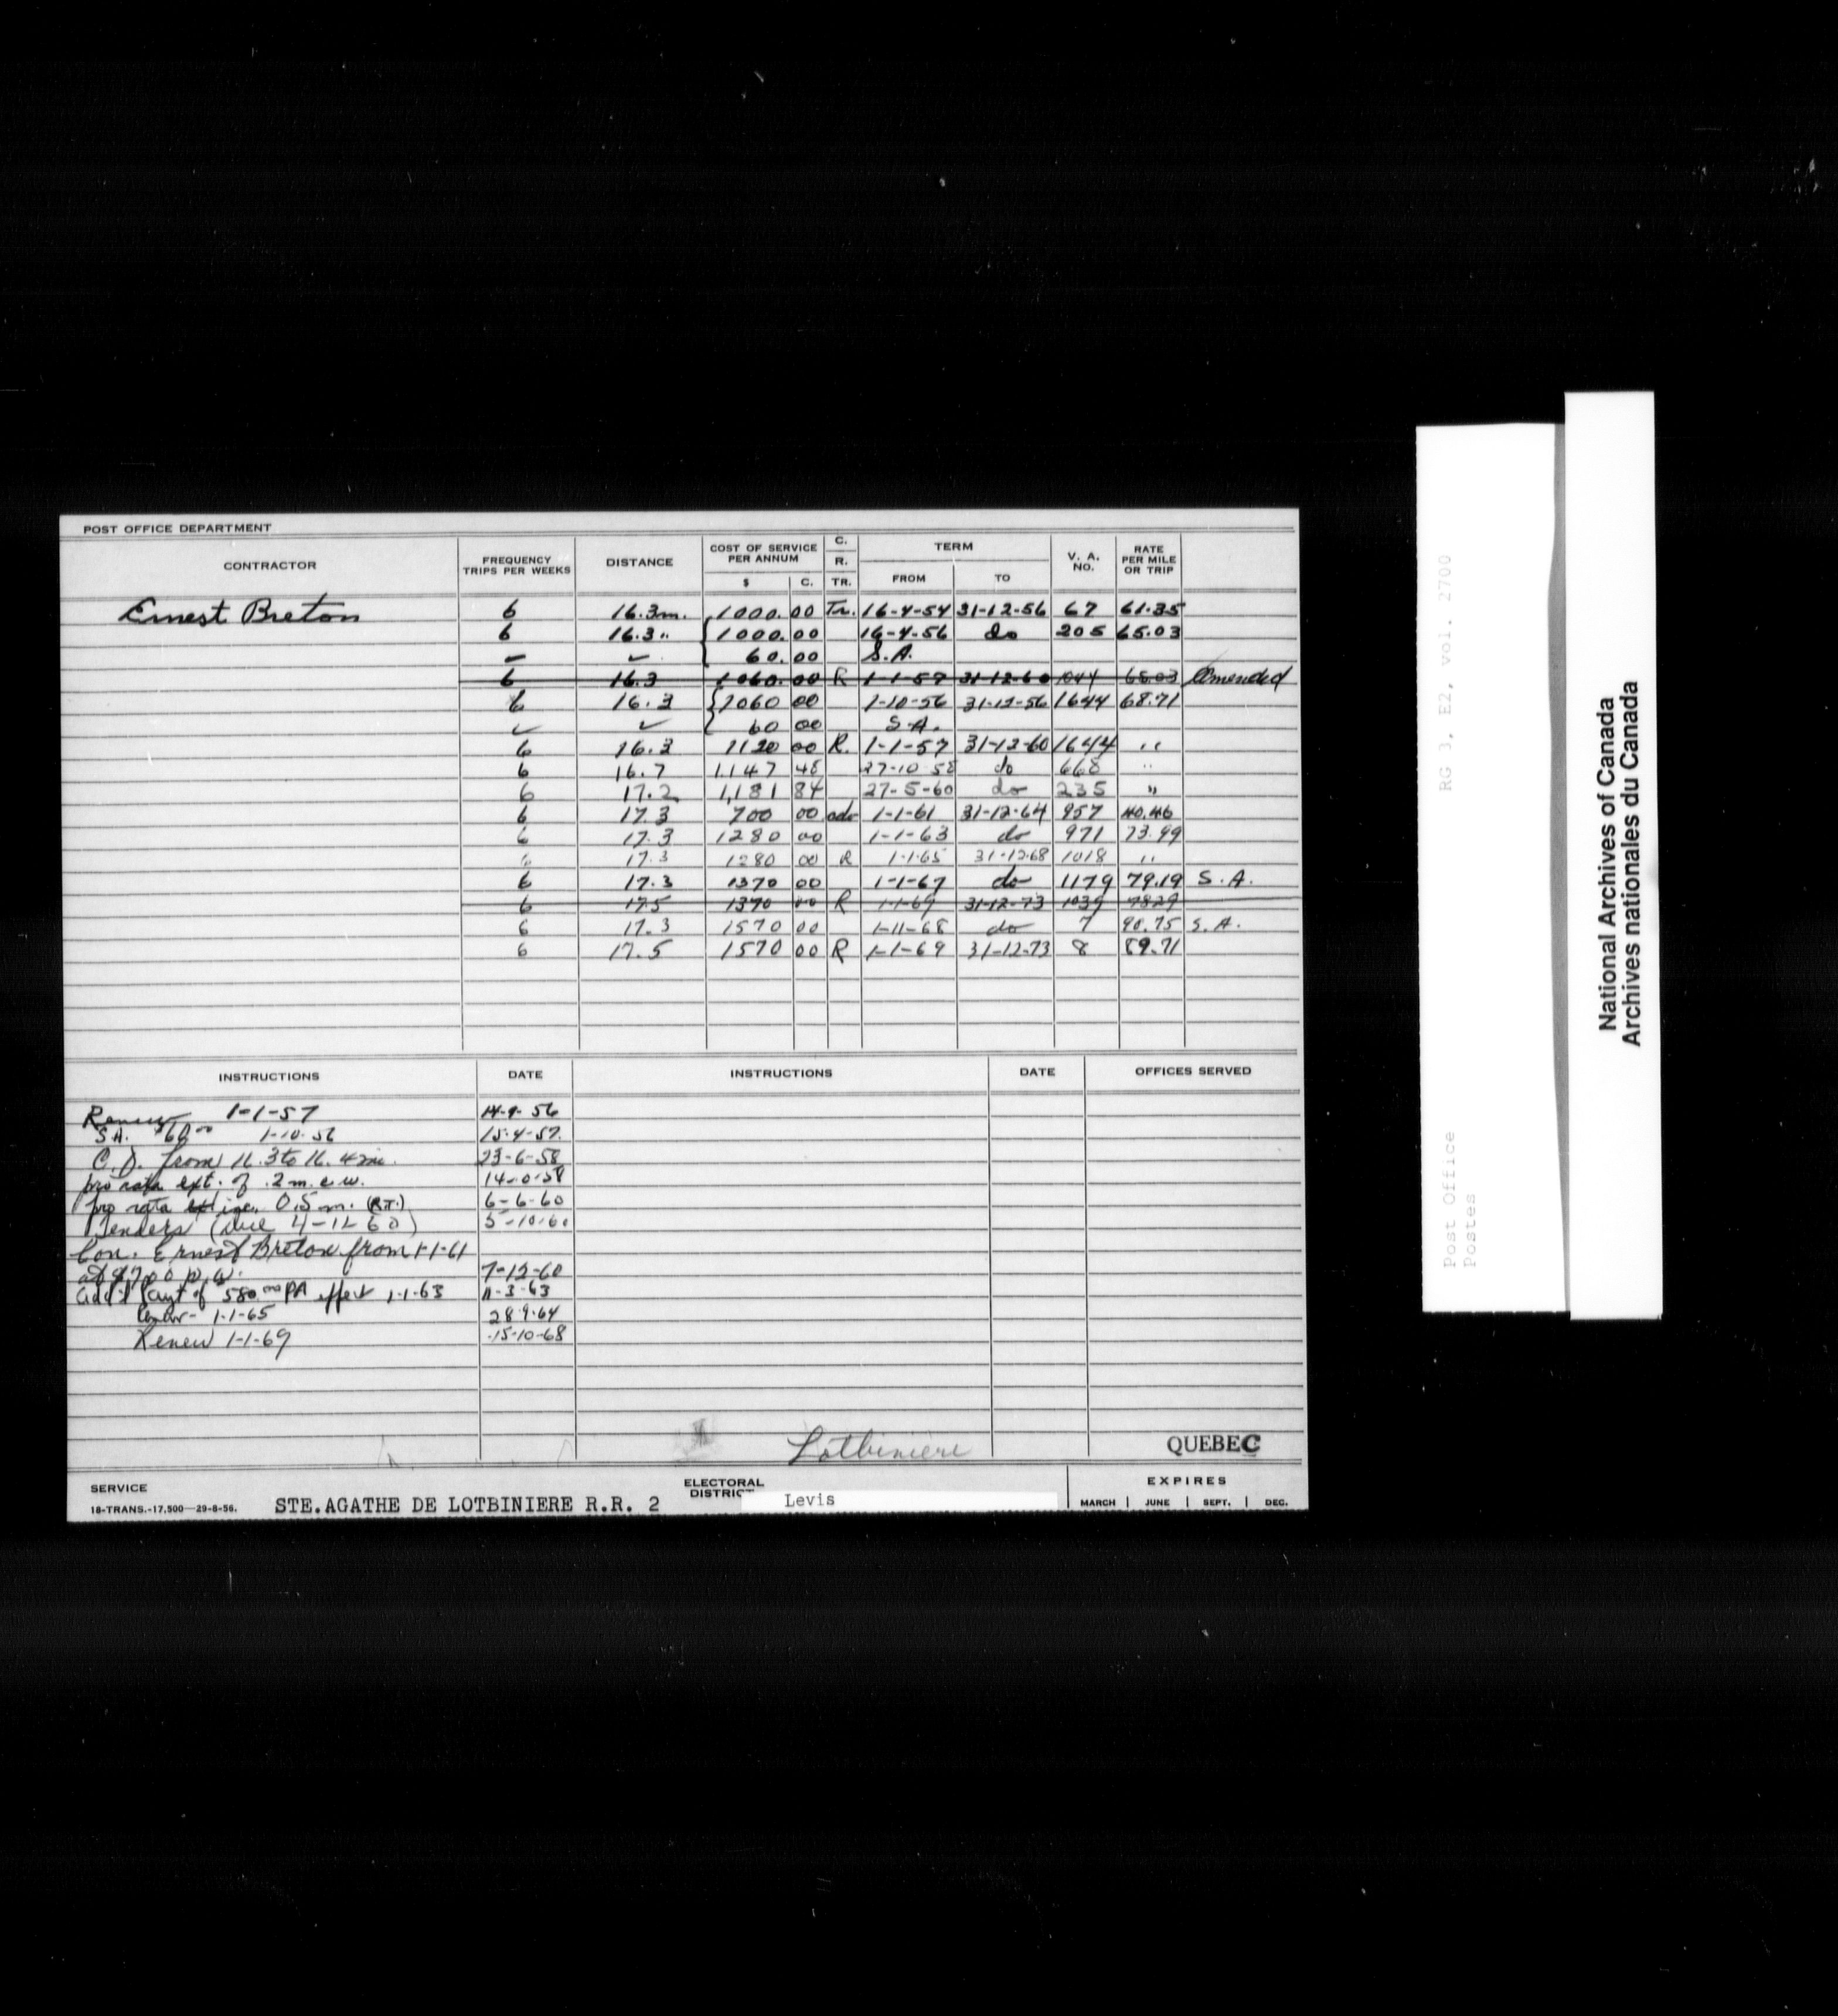 POST OFFICE DEPARTMENT
CONTRACTOR FREQUENCY TRIPS PER WEEKS DISTANCE COST OF SERVICE PER ANNUM $ C. C. R. TR. TERM FROM TO V. A. NO. RATE PER MILE OR TRIP
Ernest Breton 6 16.3m. 1000.00 Tr. 16-4-54 31-12-56 67 61.35
6 16.3" 1000.00 16-4-56 do 205 65.03
60.00 S.A.
6 16.3 1060.00 R 1-1-57 31-12-60 1044 65.03 Amended
6 16.3 1060 00 1-10-56 31-12-56 1644 68.71
60 00 S.A.
6 16.3 1120 00 R. 1-1-57 31-12-60 1644 "
6 16.7 1,147 48 27-10 58 do 668 "
6 17.2 1,181 84 27-5-60 do 235 "
6 17.3 700 00 1-1-61 31-12-64 957 40.46
6 17.3 1280 00 1-1-63 do 971 73.99
6 17.3 1280 00 R 1-1-65 31-12-68 1018 "
6 17.3 1370 00 1-1-67 do 1179 79.19 S.A.
6 17.5 1370 00 R 1-1-69 31-12-73 1039 7829
6 17.3 1570 00 1-11-68 do 7 90.75 S.A.
6 17.5 1570 00 R 1-1-69 31-12-73 8 89.71
INSTRUCTIONS DATE INSTRUCTIONS DATE OFFICES SERVED
Renew 1-1-57 14-9-56
S.A. $60.00 1-10-56 15-4-57
C.D. from 16.3 to 16.4 mi. 23-6-58
pro rata ext. of .2 m. e.w.
pro rata inc. 0.5 m. (R.T.) 6-6-60
Tenders (due 4-11-60) 5-10-60
Con. Ernest Breton from 1-1-61
at $700 p.a. 7-12-60
add'l Payt of 580.00 PA effect 1-1-63 11-3-63
1-1-65 28-9-64
Renew 1-1-69 15-10-68
Lotbiniere QUEBEC
SERVICE
18-TRANS.-17,500—29-8-56. STE.AGATHE DE LOTBINIERE R.R. 2 ELECTORAL DISTRICT Levis
EXPIRES
MARCH JUNE SEPT. DEC.
RG 3, E2, vol. 2700
Post Office
Postes
National Archives of Canada
Archives nationales du Canada